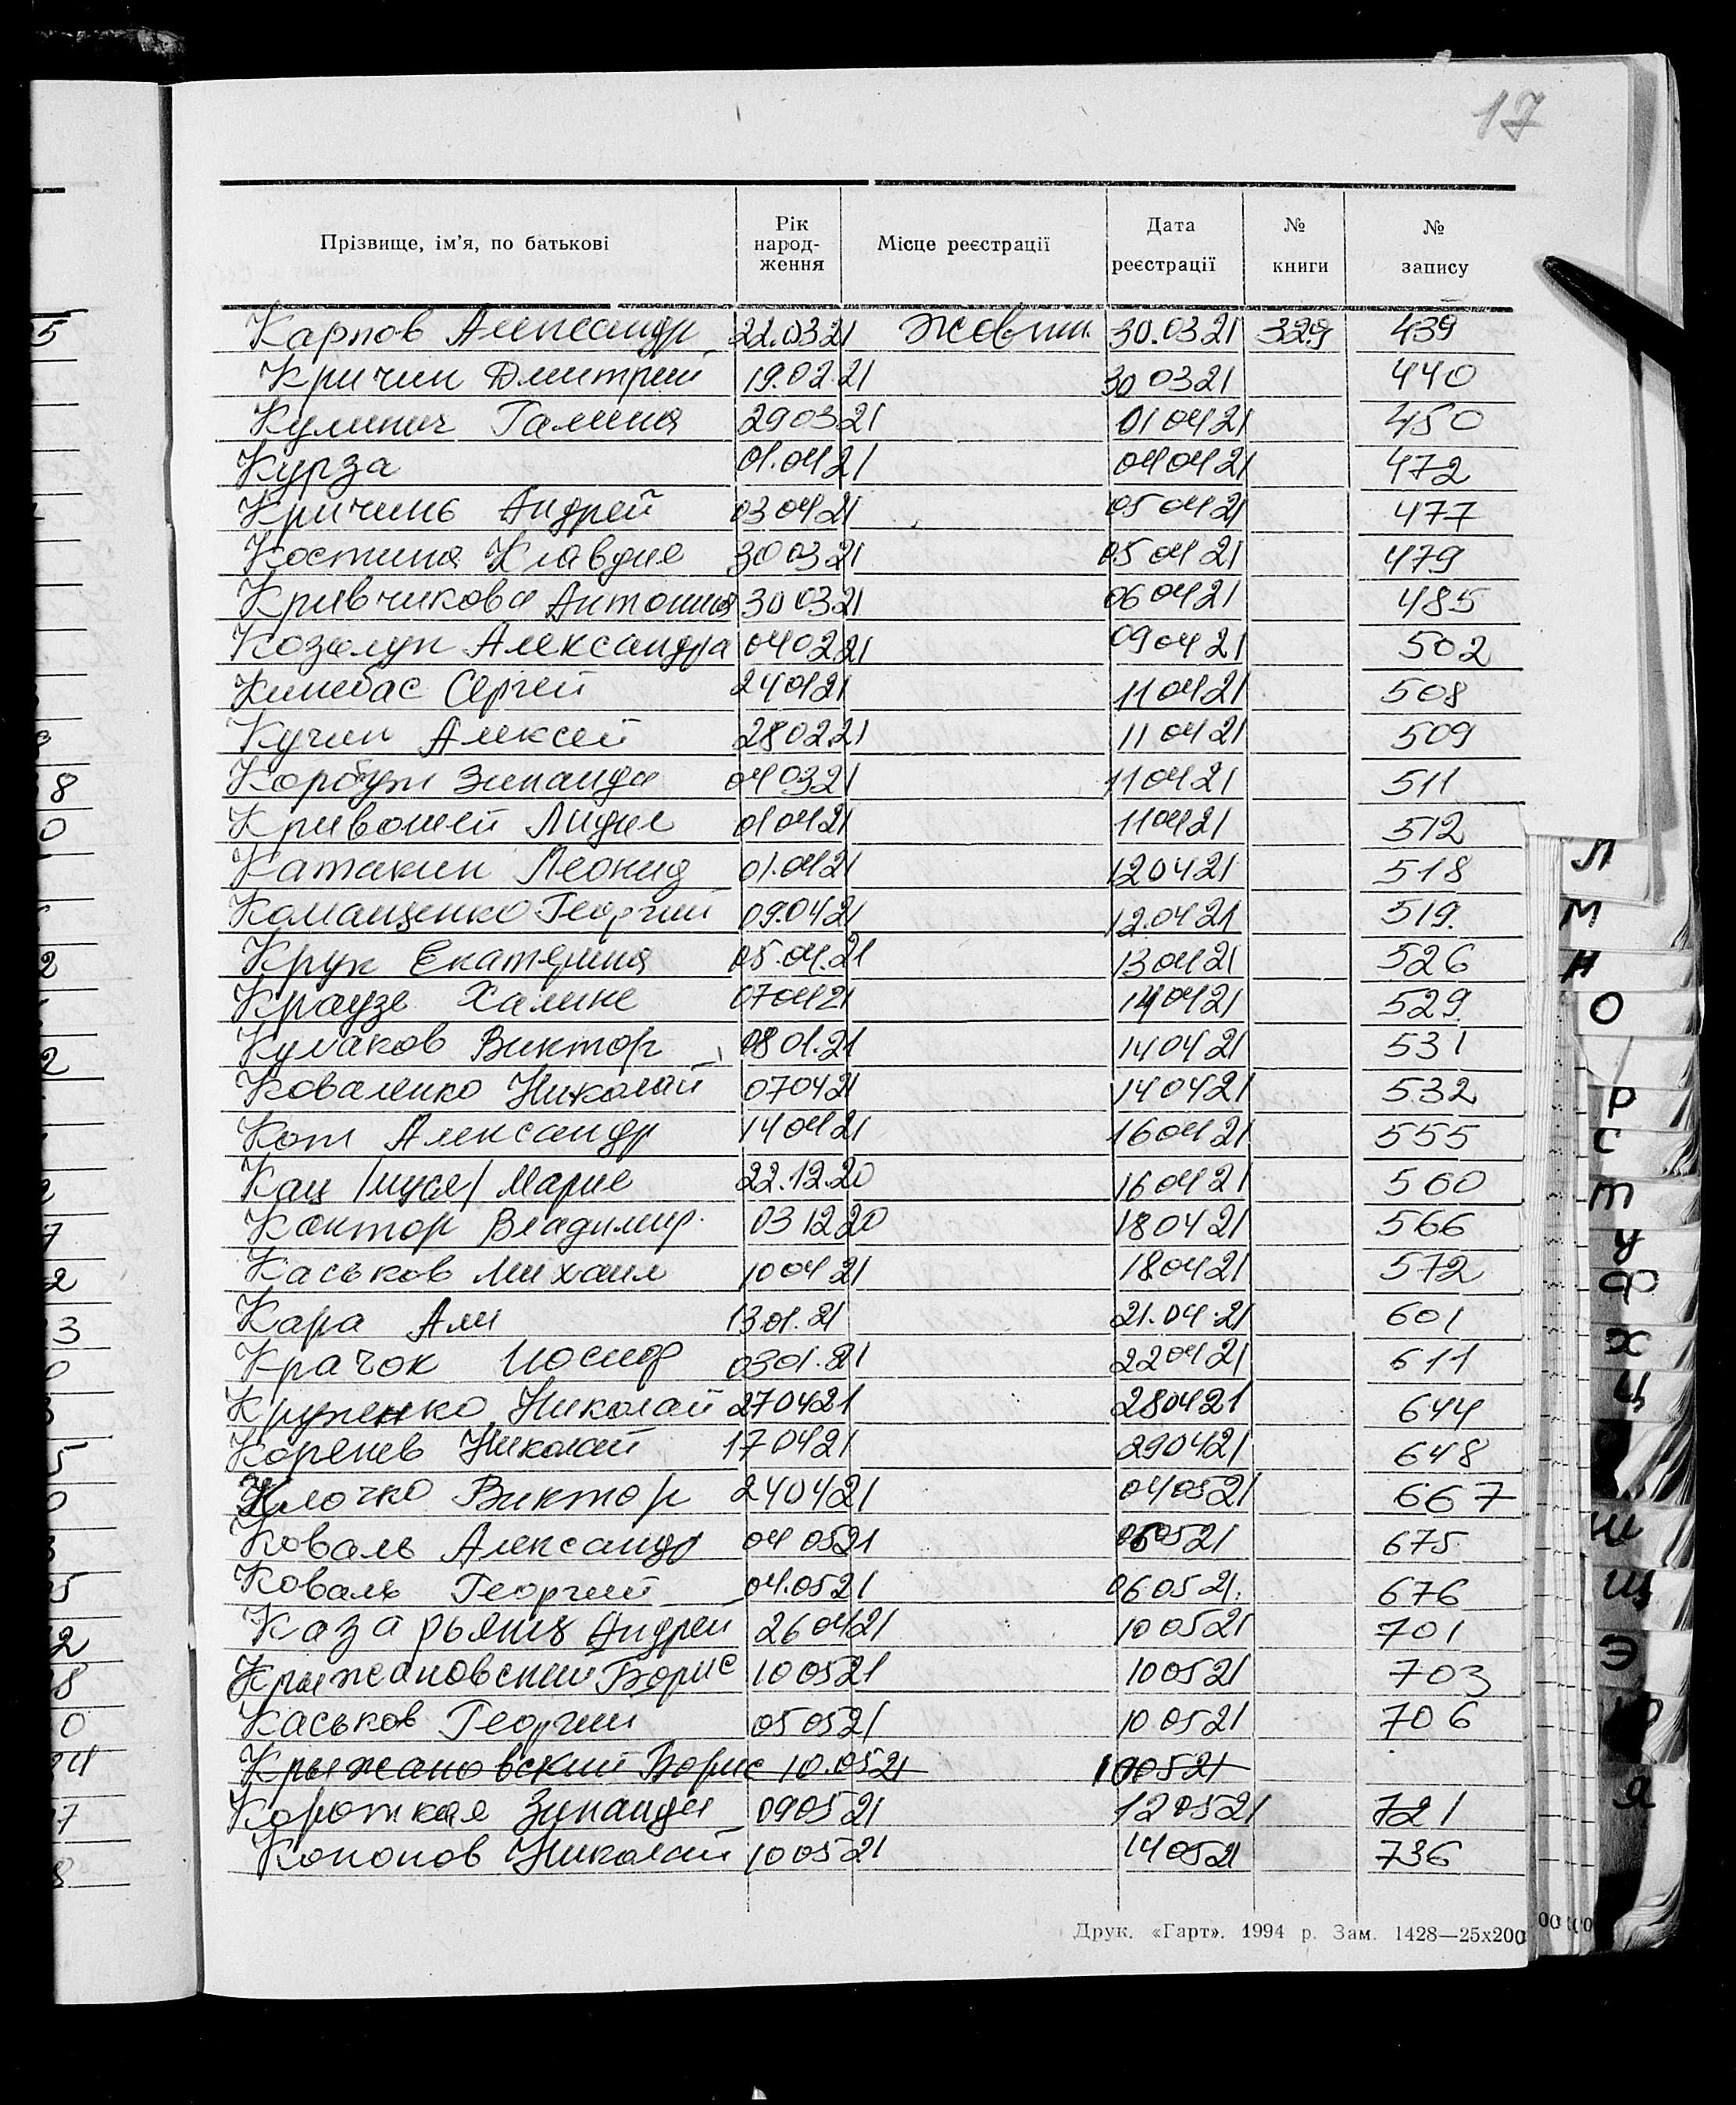 17
Прізвище, ім'я, по батькові Рік народ- ження Місце реєстрації Дата реєстрації № книги № запису
Карпов Александр 22.03 21 Жовтн. 30.03 21 329 439
Кричун Дмитрий 19.02.21 30 03 21 440
Кулинич Галина 29 03 21 01 04 21 450
Курза 01.04 21 04 04 21 472
Кричинь Андрей 03 04 21 05 04 21 477
Костина Клавдия 30 03 21 05 04 21 479
Кривчикова Антонина 30 03 21 06 04 21 485
Козолуп Александра 04 02 21 09 04 21 502
Кинебас Сергей 24 01 21 11 04 21 508
Кучин Алексей 28 02.21 11 04 21 509
Корбут Зинаида 04 03 21 11 04 21 511
Кривошей Лидия 01 04 21 11 04 21 512
Катакин Леонид 01.04 21 12 04 21 518
Комащенко Георгий 09.04 21 12.04 21 519.
Крук Екатерина 05.04.21 13 04 21 526
Краузе Халине 07 04 21 14 04 21 529
Кулаков Виктор 08 01.21 14 04 21 531
Коваленко Николай 07 04 21 14 04 21 532
Кот Александр 14 04 21 16 04 21 555
Кац /муся/ Мария 22.12.20 16 04 21 560
Кантор Владимир. 03 12 20 18 04 21 566
Каськов Михаил 10 04 21 18 04 21 572
Кара Али 13 01.21 21.04.21 601
Крачок Иосиф 03 01.21 22 04 21 611
Круженко Николай 27 04 21 28 04 21 644
Коренев Николай 17 04 21 29 04 21 648
Клочко Виктор 24 04 21 04 05 21 667
Коваль Александр 04 05 21 06 05 21 675
Коваль Георгий 04.05 21 06 05 21. 676
Казарьянц Андрей 26 04 21 10 05 21 701
Крыжановский Борис 10 05 21 10 05 21 703
Каськов Георгий 05 05 21 10 05 21 706
Крыжановский Борис 10.05 21 10 05 21
Короткая Зинаида 09 05 21 12 05 21 721
Кононов Николай 10 05 21 14 05 21 736
Друк. «Гарт». 1994 р. Зам. 1428—25х200
Л
М
Н
О
Р
С
Т
У
Ф
Х
Ц
Ш
Щ
Э
Я